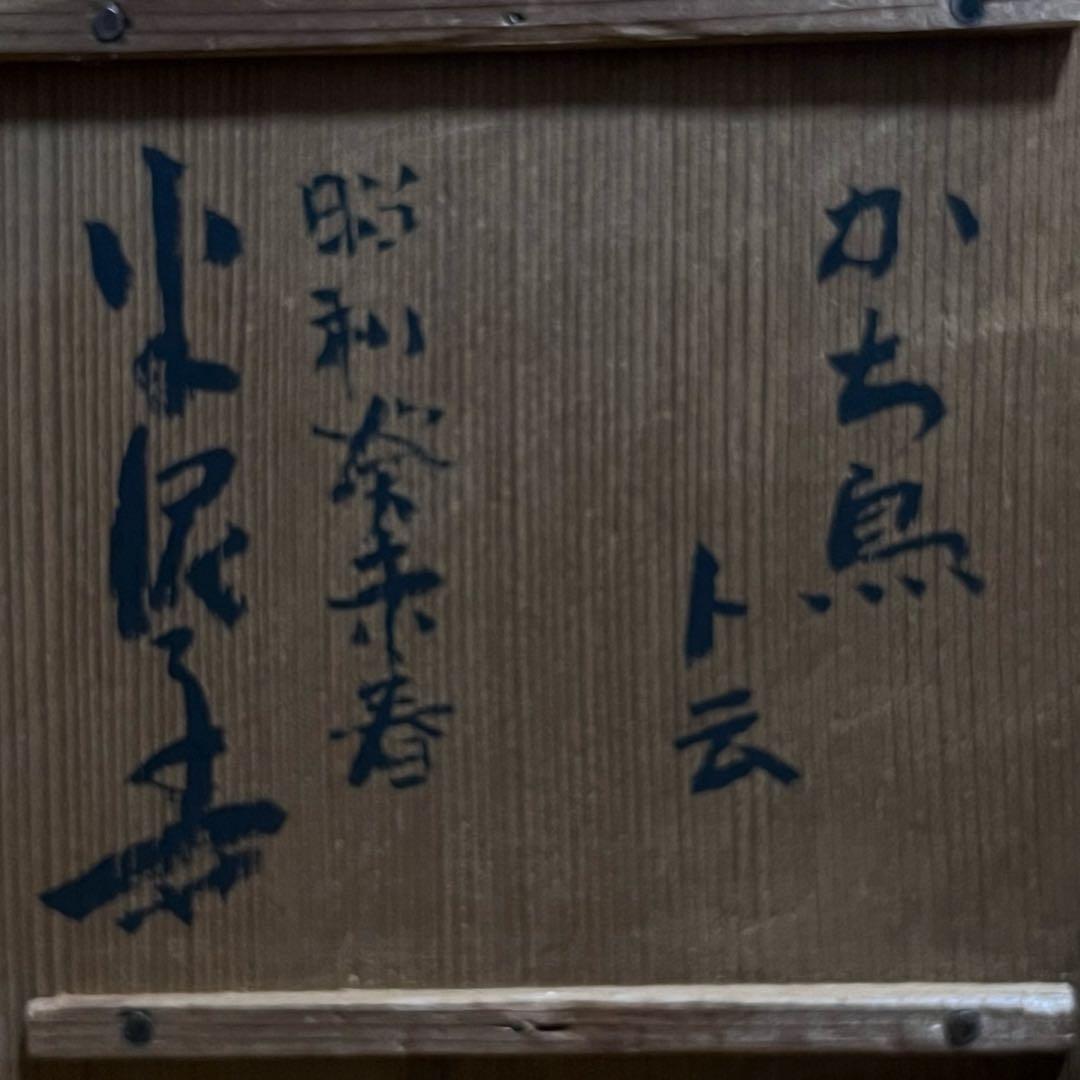 かち鳥
ト云
昭和癸未春
半泥子